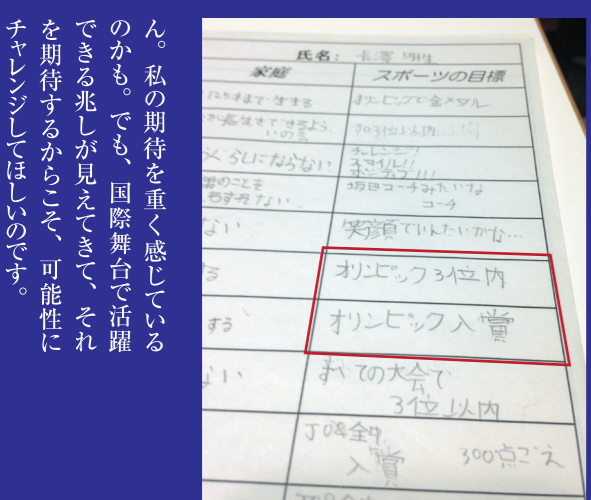 ん。私の期待を重く感じている
のかも。でも、国際舞台で活躍
できる兆しが見えてきて、それ
を期待するからこそ、可能性に
チャレンジしてほしいのです。
氏名：
家庭
スポーツの目標
125才まで生きる
オリンピックで金メダル
が長生きできるよう、
JO3位以内
らくらいにならない
チャレンジ!!
スマイル!!
のことも
わすれない
坂田コーチみたいな
コーチ
ない
笑顔でいんたいかな…
る
オリンピック3位内
する
オリンピック入賞
ない
すべての大会で
3位以内
JO&全中
入賞 300点ごえ